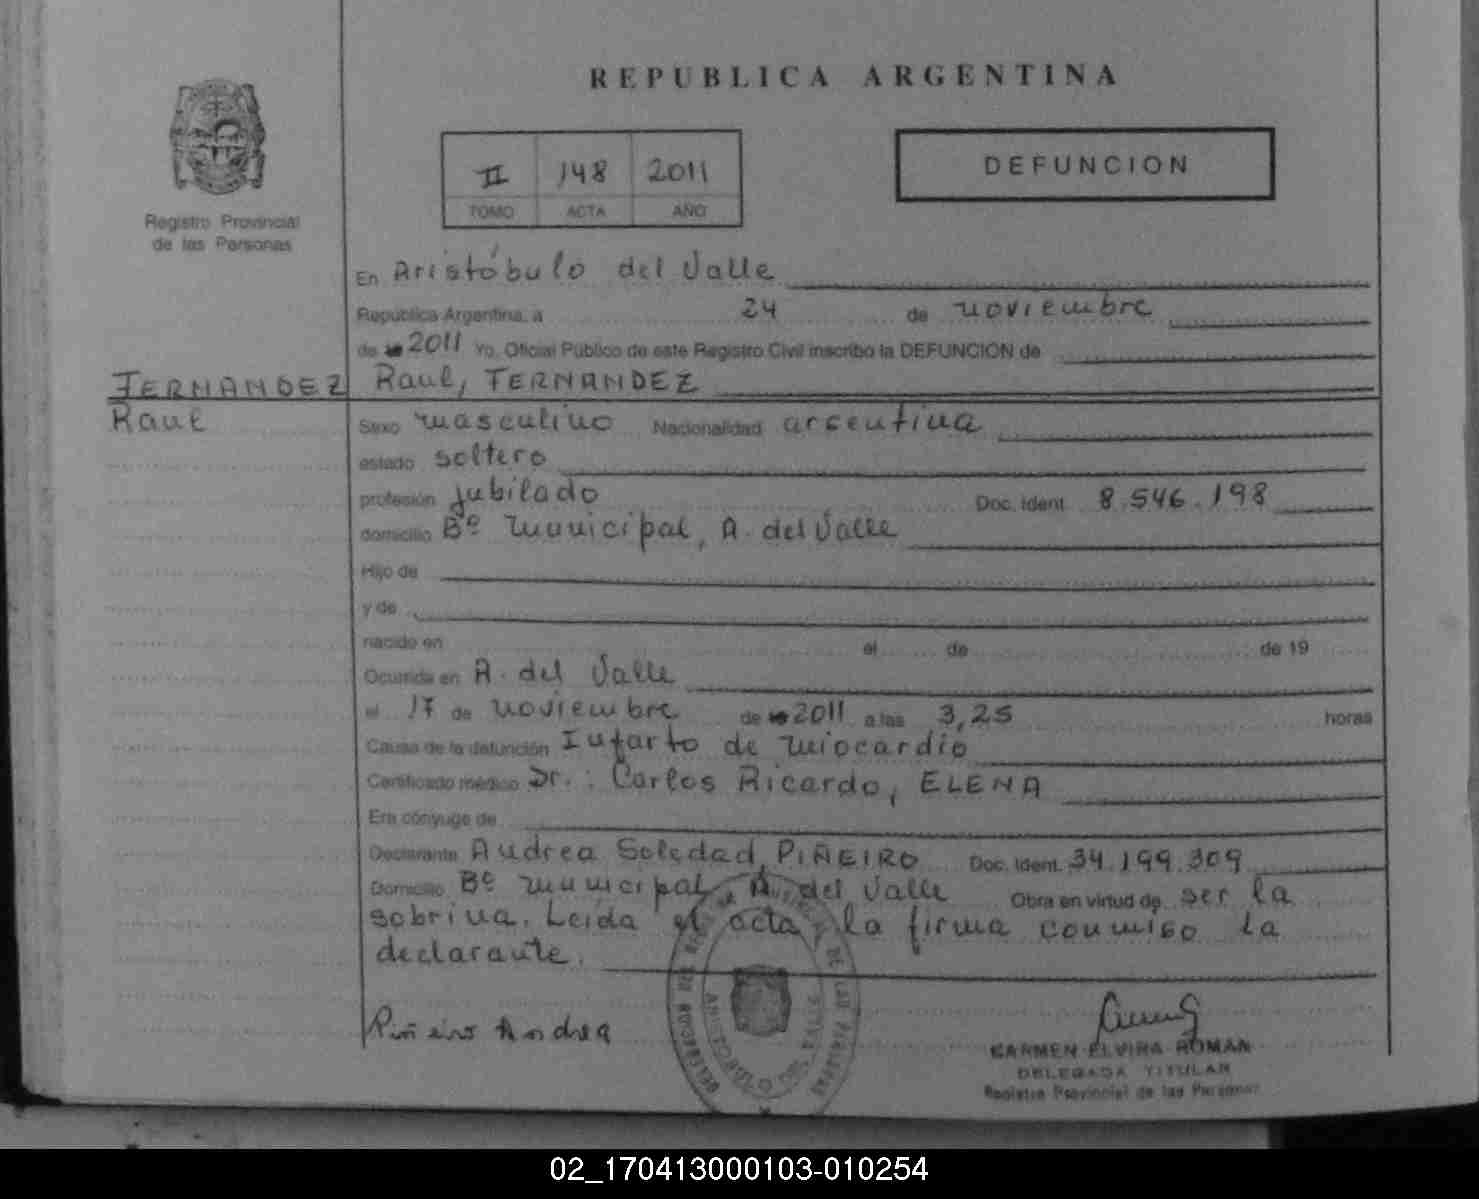 REPUBLICA ARGENTINA
Registro Provincial
de las Personas
II 148 2011
TOMO ACTA AÑO
DEFUNCION
En Aristóbulo del Valle
República Argentina, a 24 de noviembre
de 2011 Yo, Oficial Público de este Registro Civil inscribo la DEFUNCION de
FERNANDEZ Raul, FERNANDEZ
Raul
Sexo masculino Nacionalidad argentina
estado soltero
profesión jubilado Doc. Ident. 8.546.198
domicilio Bº Municipal, A. del Valle
Hijo de
y de
nacido en el de de 19
Ocurrida en A. del Valle
el 17 de noviembre de 2011 a las 3,25 horas
Causa de la defunción Infarto de miocardio
Certificado médico Dr.: Carlos Ricardo, ELENA
Era cónyuge de
Declarante Andrea Soledad, PIÑEIRO Doc. Ident. 34.199.309
Domicilio Bº municipal, A. del Valle Obra en virtud de ser la
sobrina. Leída el acta, la firma conmigo la
declarante.
Piñeiro Andrea
CARMEN ELVIRA ROMAN
DELEGADA TITULAR
Registro Provincial de las Personas
02_170413000103-010254